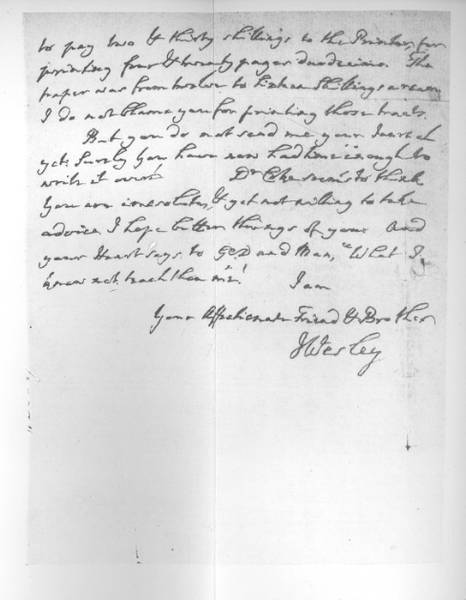 to pay two & thirty shillings to the Printer, for
printing four & twenty pages duodecimo. The
paper was from twelve to fifteen Shillings a ream
I do not blame you for printing those tracts.
But you do not send me your Journal
yet. Surely you have now had time enough to
write it over. Dr Coke seems to think
you are irresolute, & yet not willing to take
advice. I hope better things of you. And
your Heart says to God and Man, "What I
know not, teach thou me!" I am
Your Affectionate Friend & Brother
J Wesley